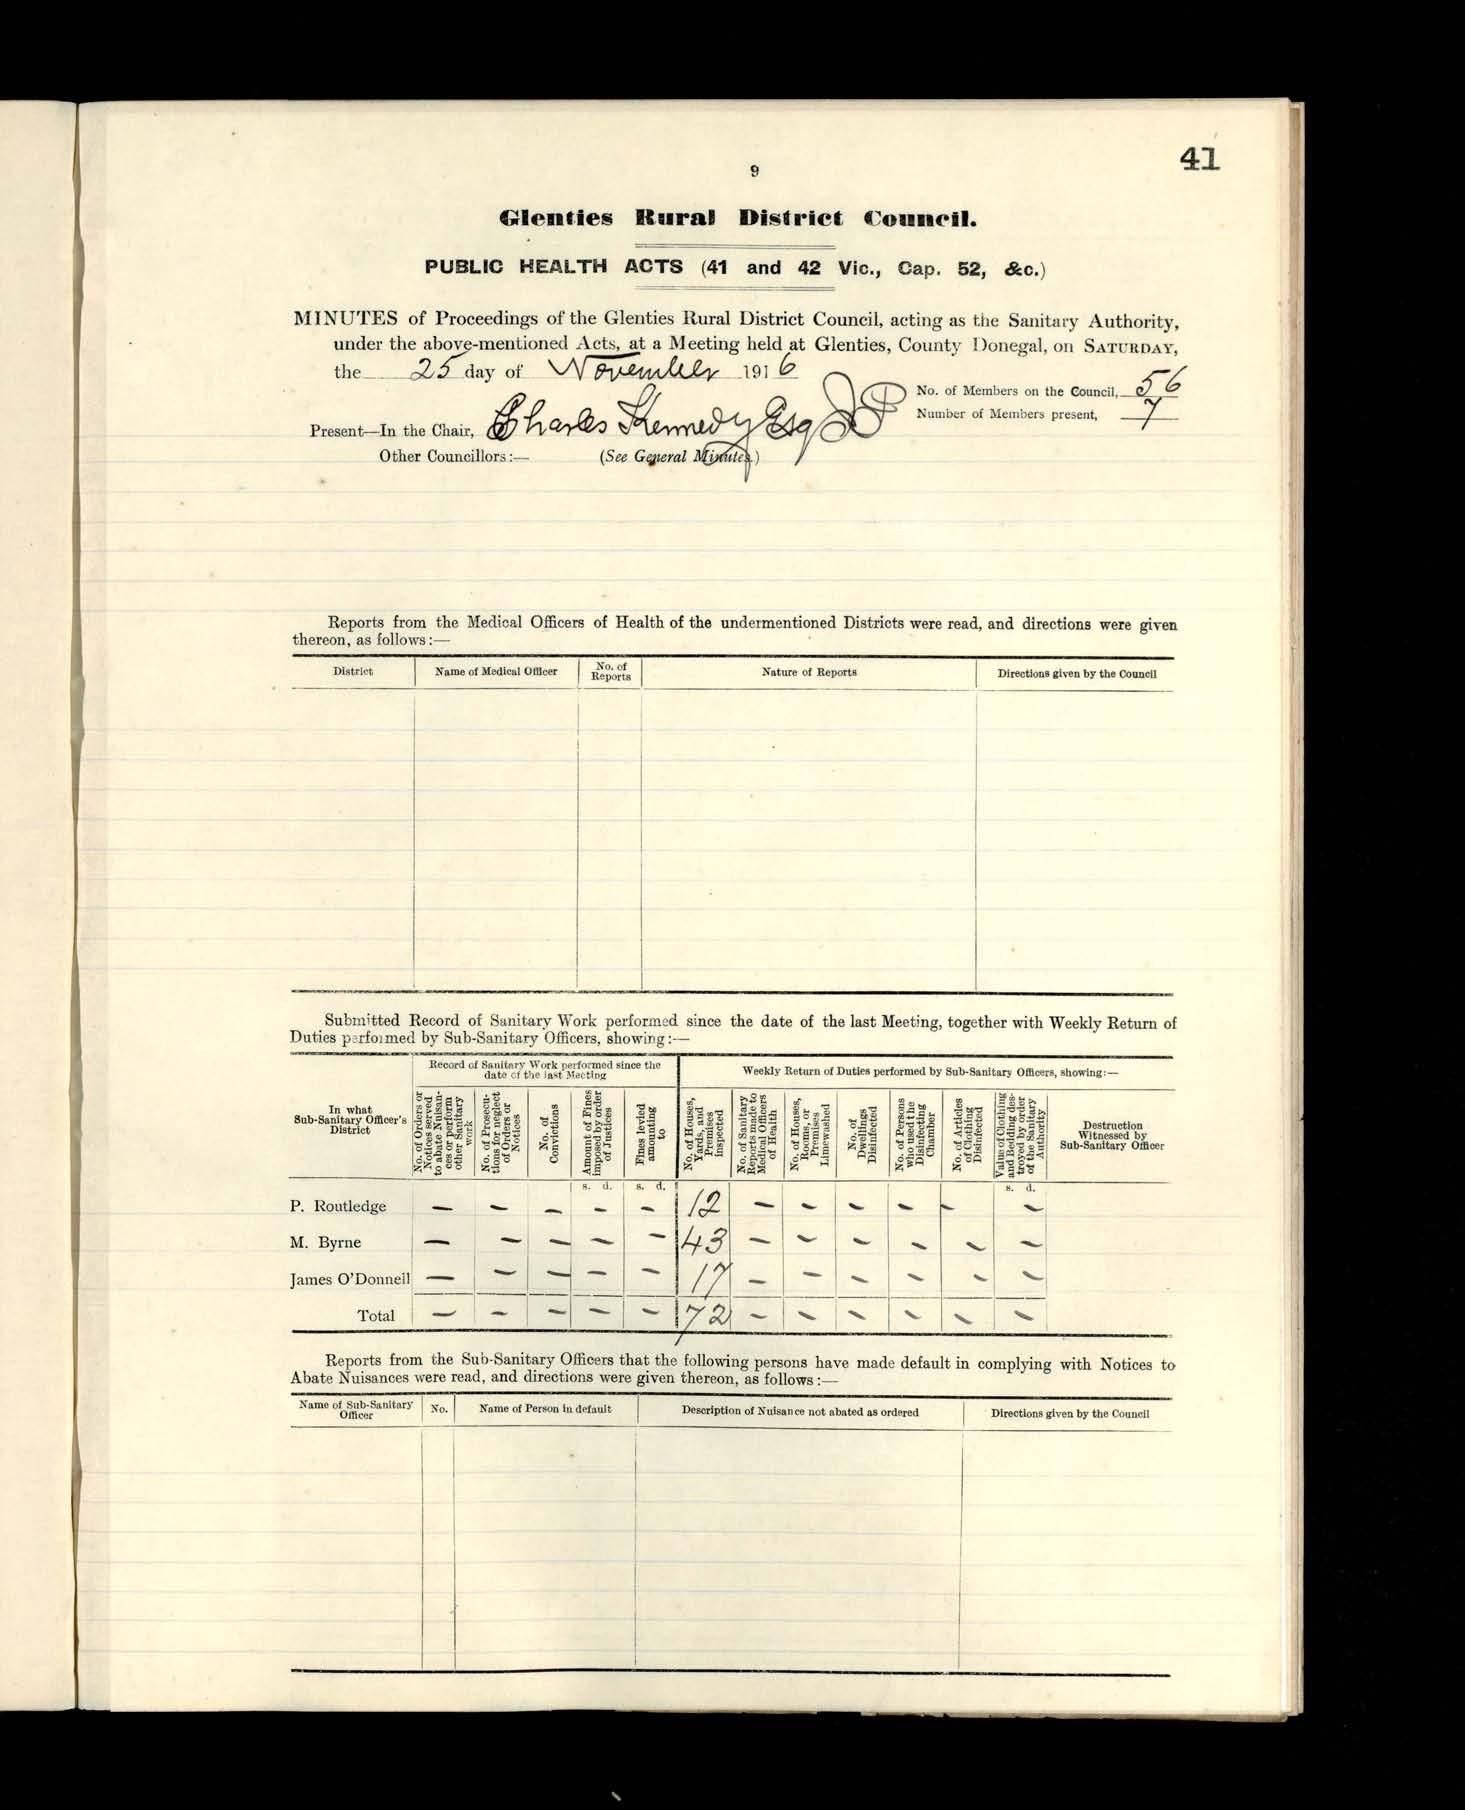 41
9
Glenties Rural District Council.
PUBLIC HEALTH ACTS (41 and 42 Vic., Cap. 52, &c.)
MINUTES of Proceedings of the Glenties Rural District Council, acting as the Sanitary Authority,
under the above-mentioned Acts, at a Meeting held at Glenties, County Donegal, on SATURDAY,
the 25 day of November 1916
No. of Members on the Council, 56
Number of Members present, 7
Present—In the Chair, Charles Kennedy Esq JP
Other Councillors:— (See General Minutes.)
Reports from the Medical Officers of Health of the undermentioned Districts were read, and directions were given
thereon, as follows:—
District | Name of Medical Officer | No. of Reports | Nature of Reports | Directions given by the Council
Submitted Record of Sanitary Work performed since the date of the last Meeting, together with Weekly Return of
Duties performed by Sub-Sanitary Officers, showing:—
In what Sub-Sanitary Officer's District
Record of Sanitary Work performed since the
date of the last Meeting
Weekly Return of Duties performed by Sub-Sanitary Officers, showing:—
No. of Orders or Notices served to abate Nuisances or perform other Sanitary work
No. of Prosecutions for neglect of Orders or Notices
No. of Convictions
Amount of Fines imposed by order of Justices
Fines levied amounting to
No. of Houses, Yards, and Premises inspected
No. of Sanitary Reports made to Medical Officers of Health
No. of Houses, Rooms, or Premises Limewashed
No. of Dwellings Disinfected
No. of Persons who used the Disinfecting Chamber
No. of Articles of Clothing Disinfected
Value of Clothing and Bedding destroyed by order of the Sanitary Authority
Destruction Witnessed by Sub-Sanitary Officer
s. d. s. d. s. d.
P. Routledge — — — — — 12 — — — — — —
M. Byrne — — — — — 43 — — — — — —
James O'Donnell — — — — — 17 — — — — — —
Total — — — — — 72 — — — — — —
Reports from the Sub-Sanitary Officers that the following persons have made default in complying with Notices to
Abate Nuisances were read, and directions were given thereon, as follows:—
Name of Sub-Sanitary Officer | No. | Name of Person in default | Description of Nuisance not abated as ordered | Directions given by the Council